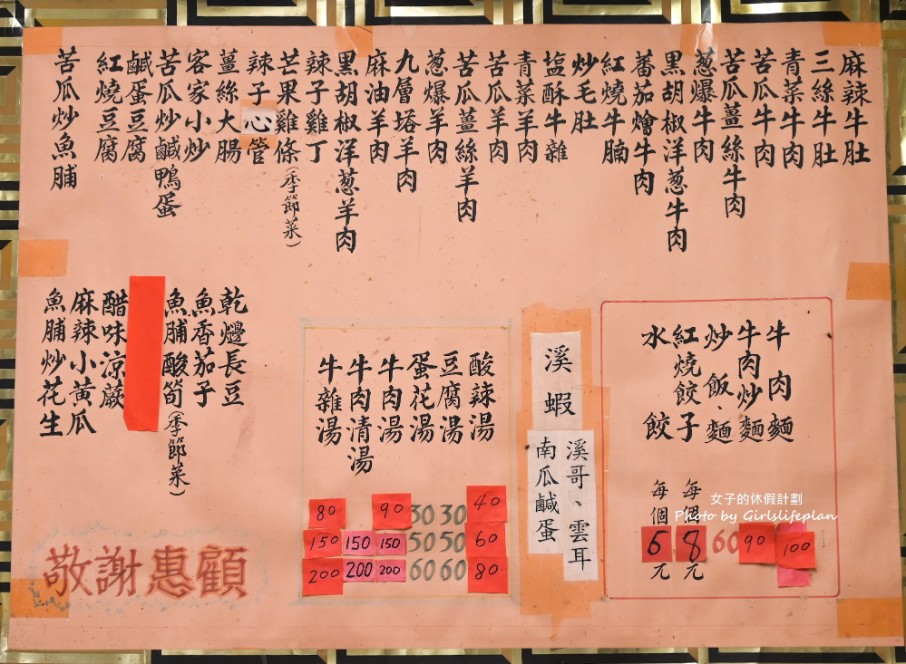 麻辣牛肚
三絲牛肚
青菜牛肉
苦瓜牛肉
苦瓜薑絲牛肉
蔥爆牛肉
黑胡椒洋蔥牛肉
蕃茄燴牛肉
紅燒牛腩
炒毛肚
塩酥牛雜
青菜羊肉
苦瓜羊肉
苦瓜薑絲羊肉
蔥爆羊肉
九層塔羊肉
麻油羊肉
黑胡椒洋蔥羊肉
辣子雞丁
芒果雞條(季節菜)
辣子心管
薑絲大腸
客家小炒
苦瓜炒鹹鴨蛋
鹹蛋豆腐
紅燒豆腐
苦瓜炒魚脯
乾煸長豆
魚香茄子
魚脯酸筍(季節菜)
醋味涼蕨
麻辣小黃瓜
魚脯炒花生
牛肉麵 100
牛肉炒麵 90
炒飯、麵 60
紅燒餃子 每個 8 元
水餃 每個 6 元
溪蝦
溪哥、雲耳
南瓜鹹蛋
酸辣湯 40 60 80
豆腐湯 30 50 60
蛋花湯 30 50 60
牛肉湯 90 150 200
牛肉清湯 150 200
牛雜湯 80 150 200
敬謝惠顧
女子的休假計劃
Photo by Girlslifeplan